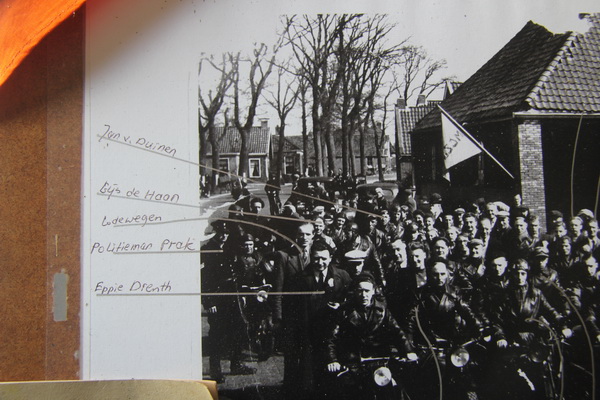 Jan v. Duinen
Gijs de Haan
Lodewegen
Politieman Prak
Eppie Drenth